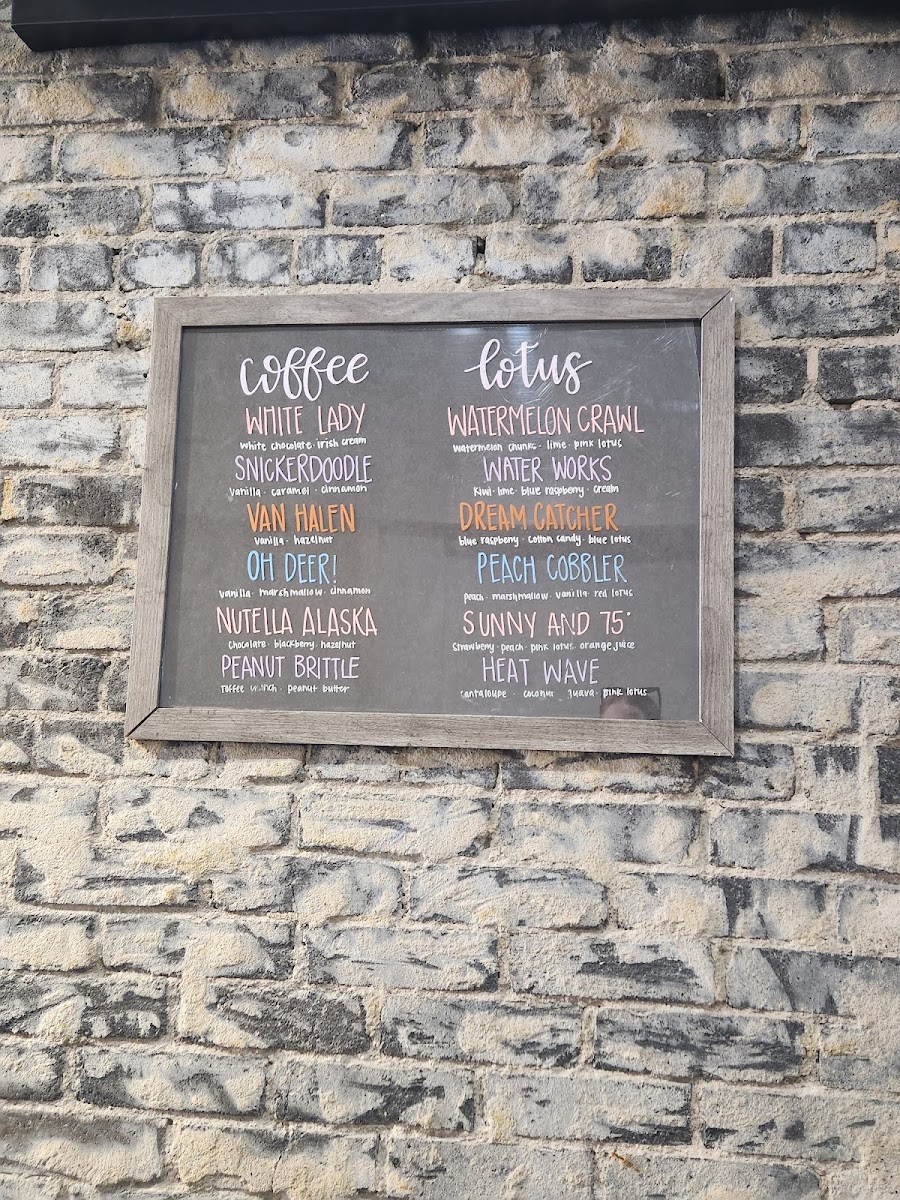 coffee
WHITE LADY
white chocolate · irish cream
SNICKERDOODLE
vanilla · caramel · cinnamon
VAN HALEN
vanilla · hazelnut
OH DEER!
vanilla · marshmallow · cinnamon
NUTELLA ALASKA
chocolate · blackberry · hazelnut
PEANUT BRITTLE
toffee crunch · peanut butter
lotus
WATERMELON CRAWL
watermelon chunks · lime · pink lotus
WATER WORKS
kiwi · lime · blue raspberry · cream
DREAM CATCHER
blue raspberry · cotton candy · blue lotus
PEACH COBBLER
peach · marshmallow · vanilla · red lotus
SUNNY AND 75°
strawberry · peach · pink lotus · orange juice
HEAT WAVE
cantaloupe · coconut · guava · pink lotus